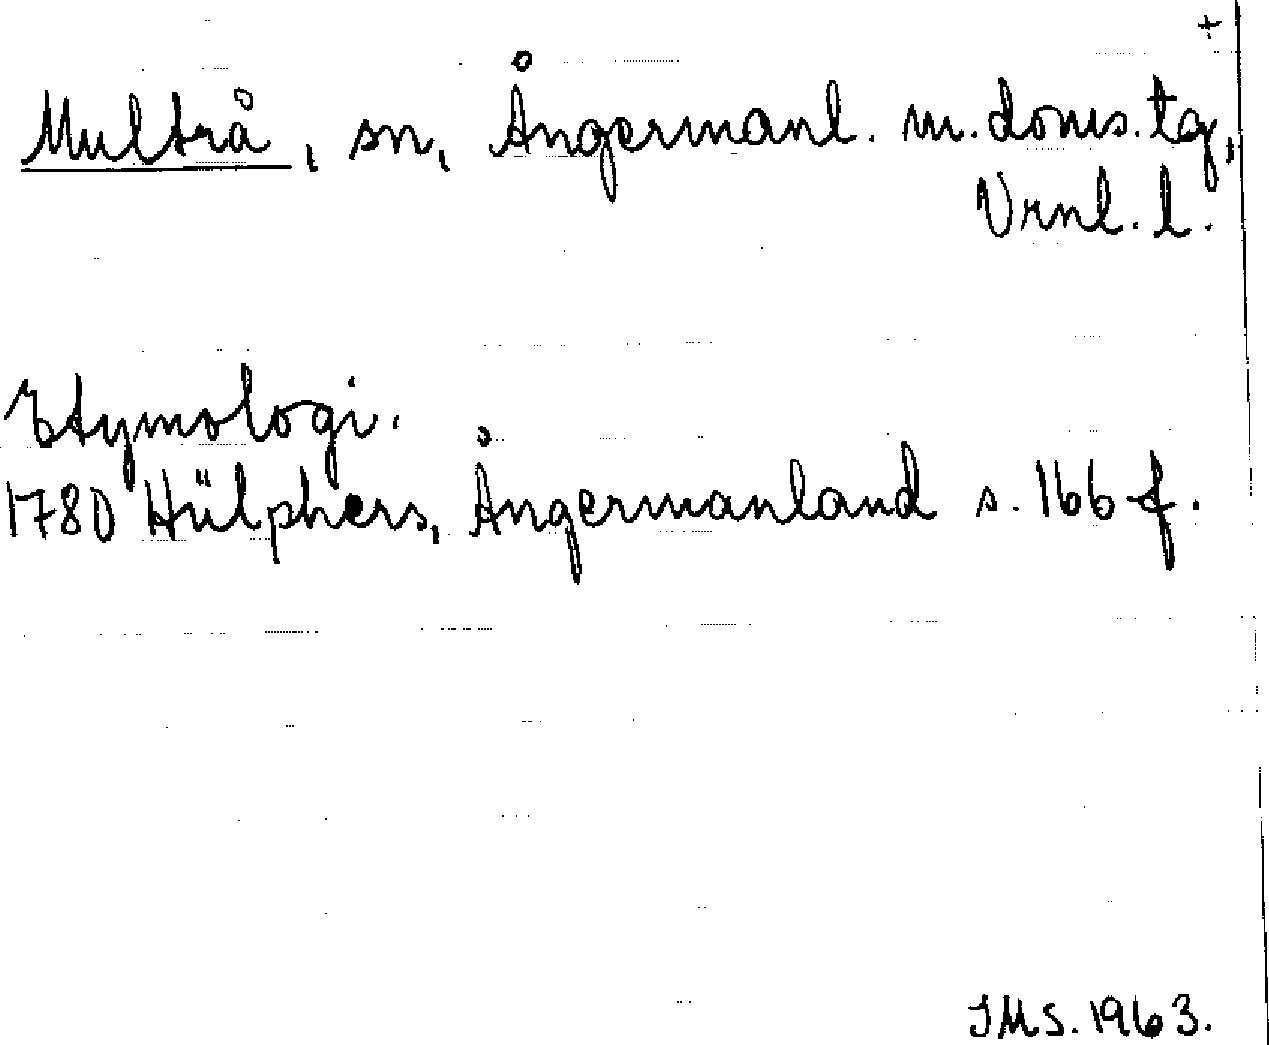 +
Multrå, sn, Ångermanl. m. doms. tg,
Vrnl. l.
Etymologi.
1780 Hülphers, Ångermanland s. 166 f.
JMS. 1963.